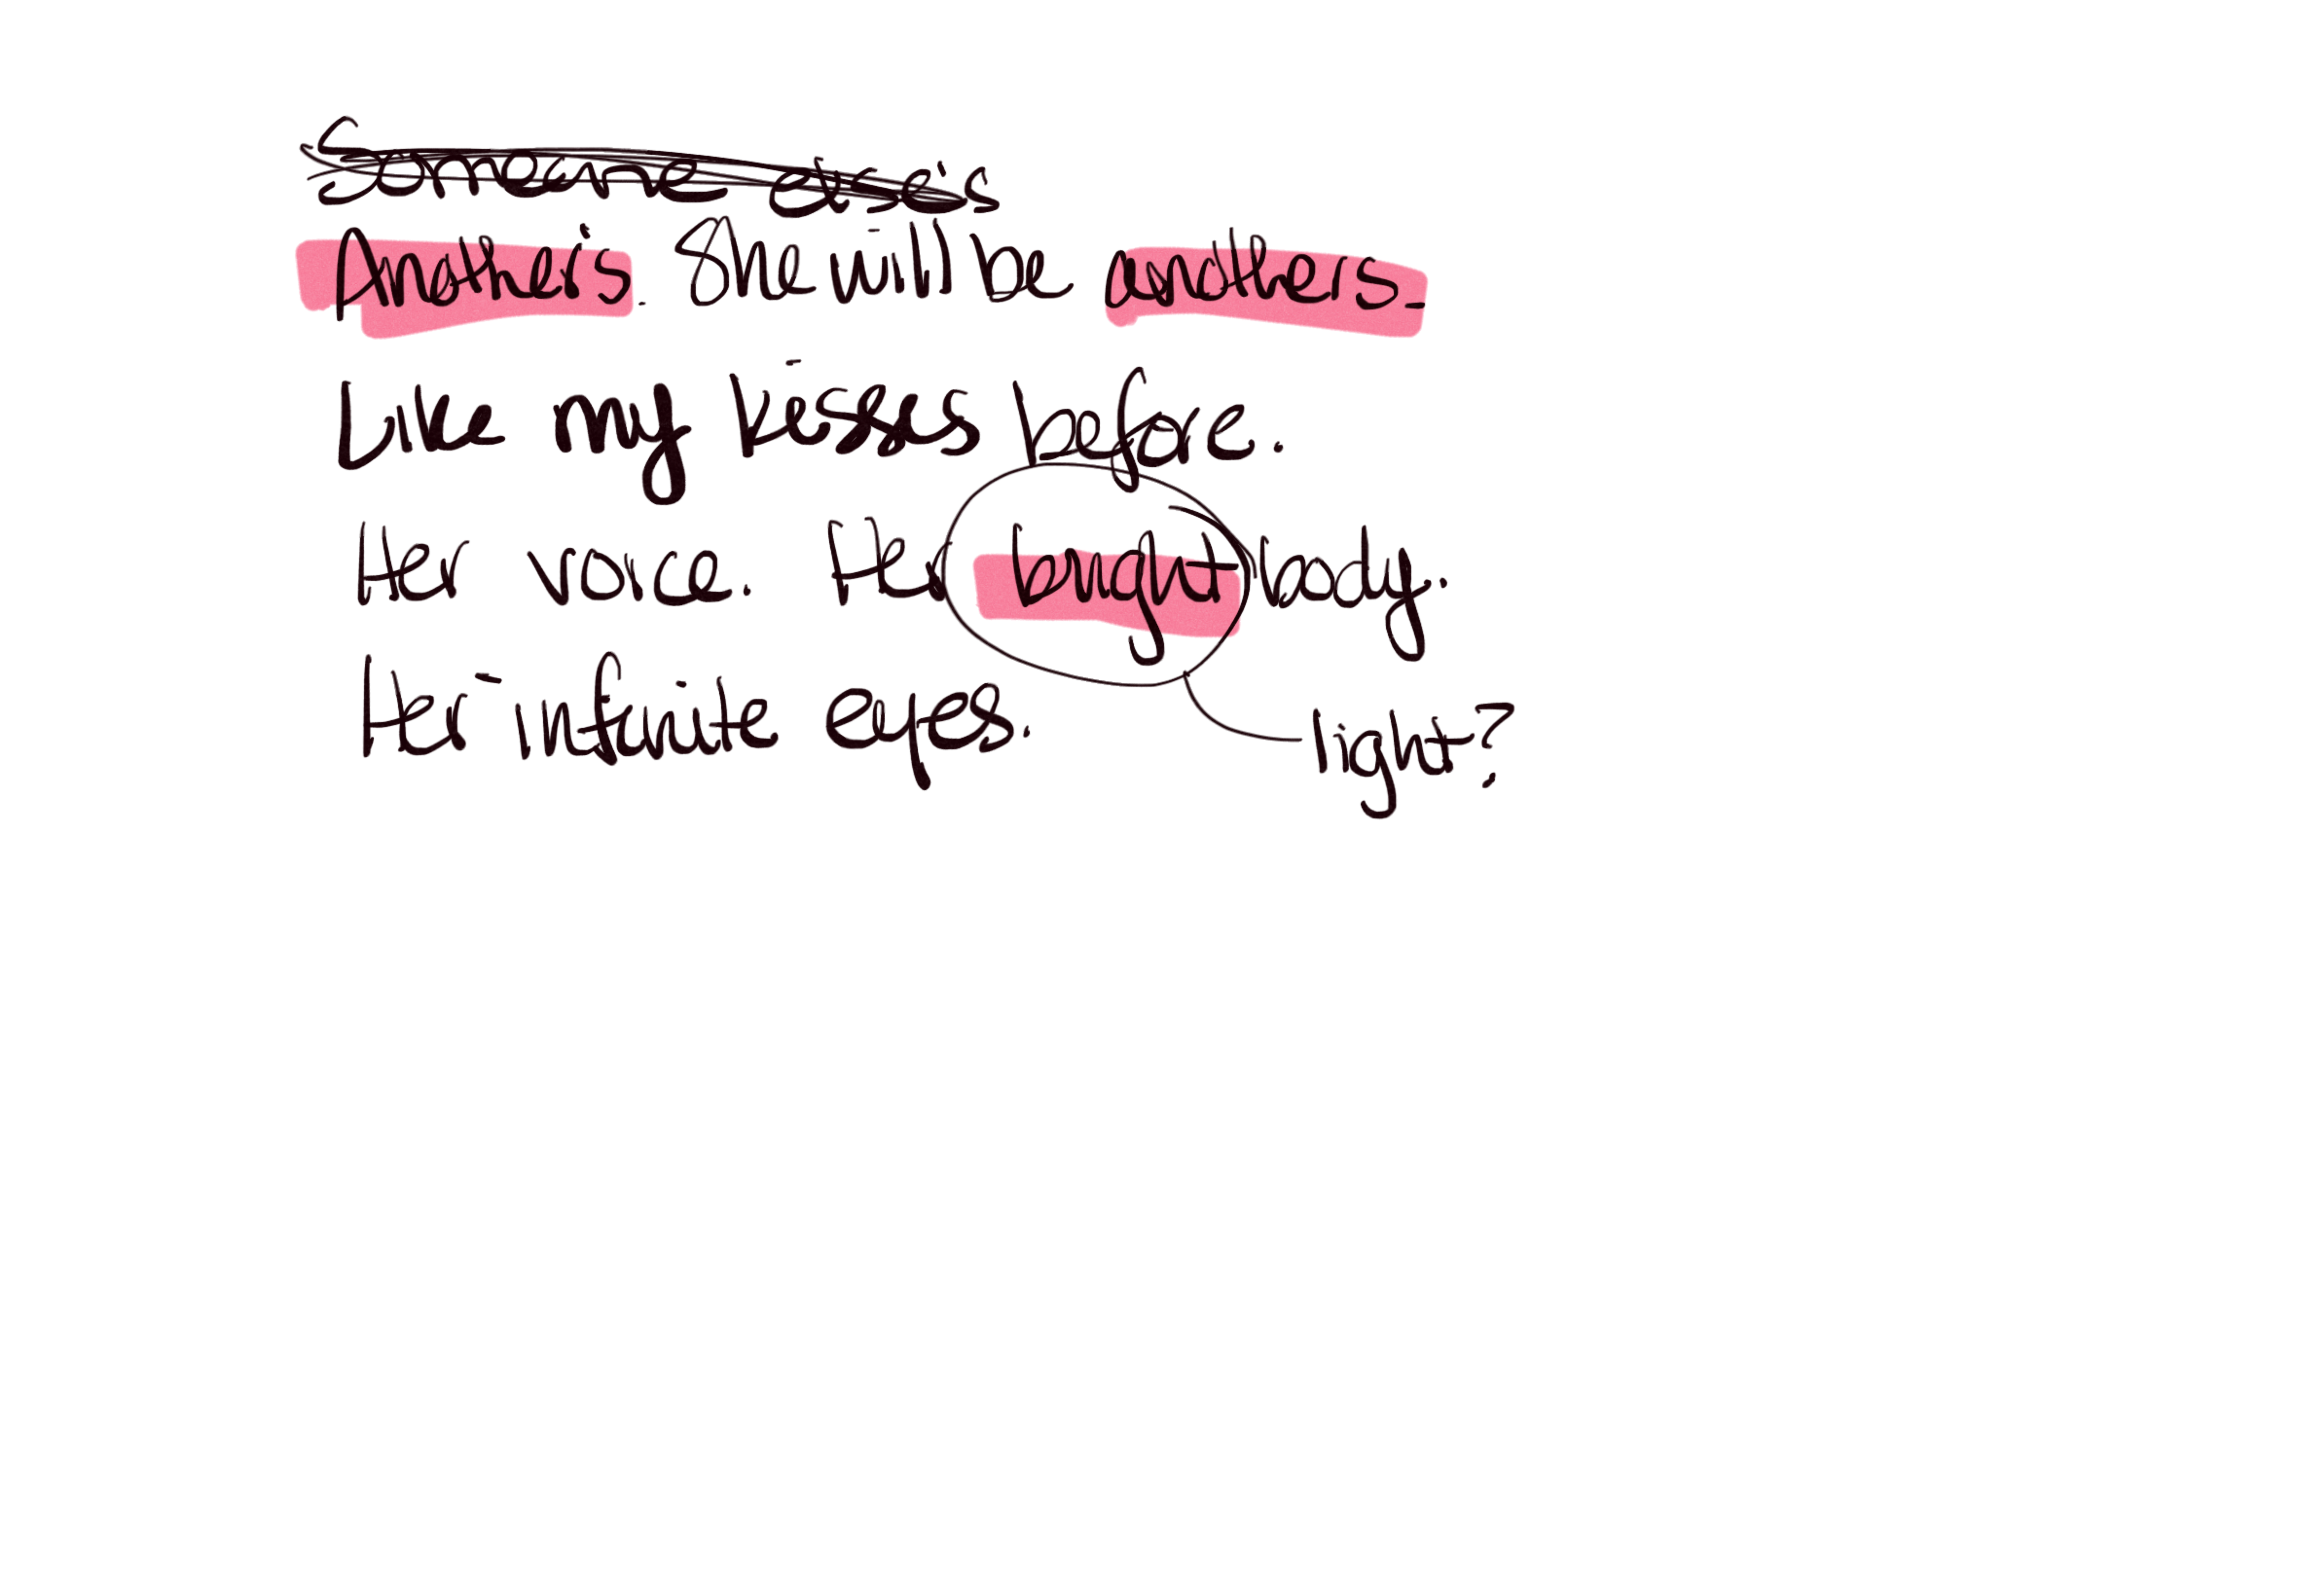 Someone else's
Another's. She will be anothers.
Like my kisses before.
Her voice. Her bright body.
Her infinite eyes.
light?